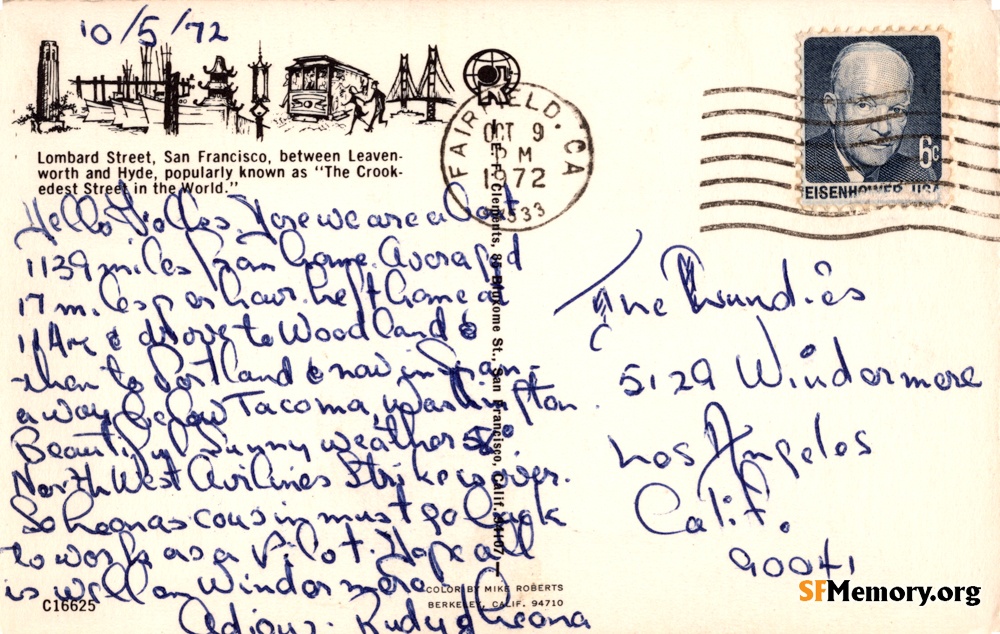 10/5/72
Lombard Street, San Francisco, between Leaven-
worth and Hyde, popularly known as "The Crook-
edest Street in the World."
Hello Folkes. Here we are about
1139 miles from home. Averaged
17 miles per hour. Left home at
11 AM & drove to Woodland &
then to Portland & now in
away below Tacoma, Washington
Beautiful Sunny weather 58°
North West Airlines Strike is over.
So Leonas cousin must go back
to work as a Pilot. Hope all
is well on Windermere
Adious. Rudy & Leona
C16625
COLOR BY MIKE ROBERTS
BERKELEY, CALIF. 94710
E. F. Clements, 85 Bluxome St., San Francisco, Calif. 94107
FAIRFIELD, CA
OCT 9
PM
1972
533
6c
EISENHOWER USA
The
5129 Windermere
Los Angeles
Calif.
90041
SFMemory.org